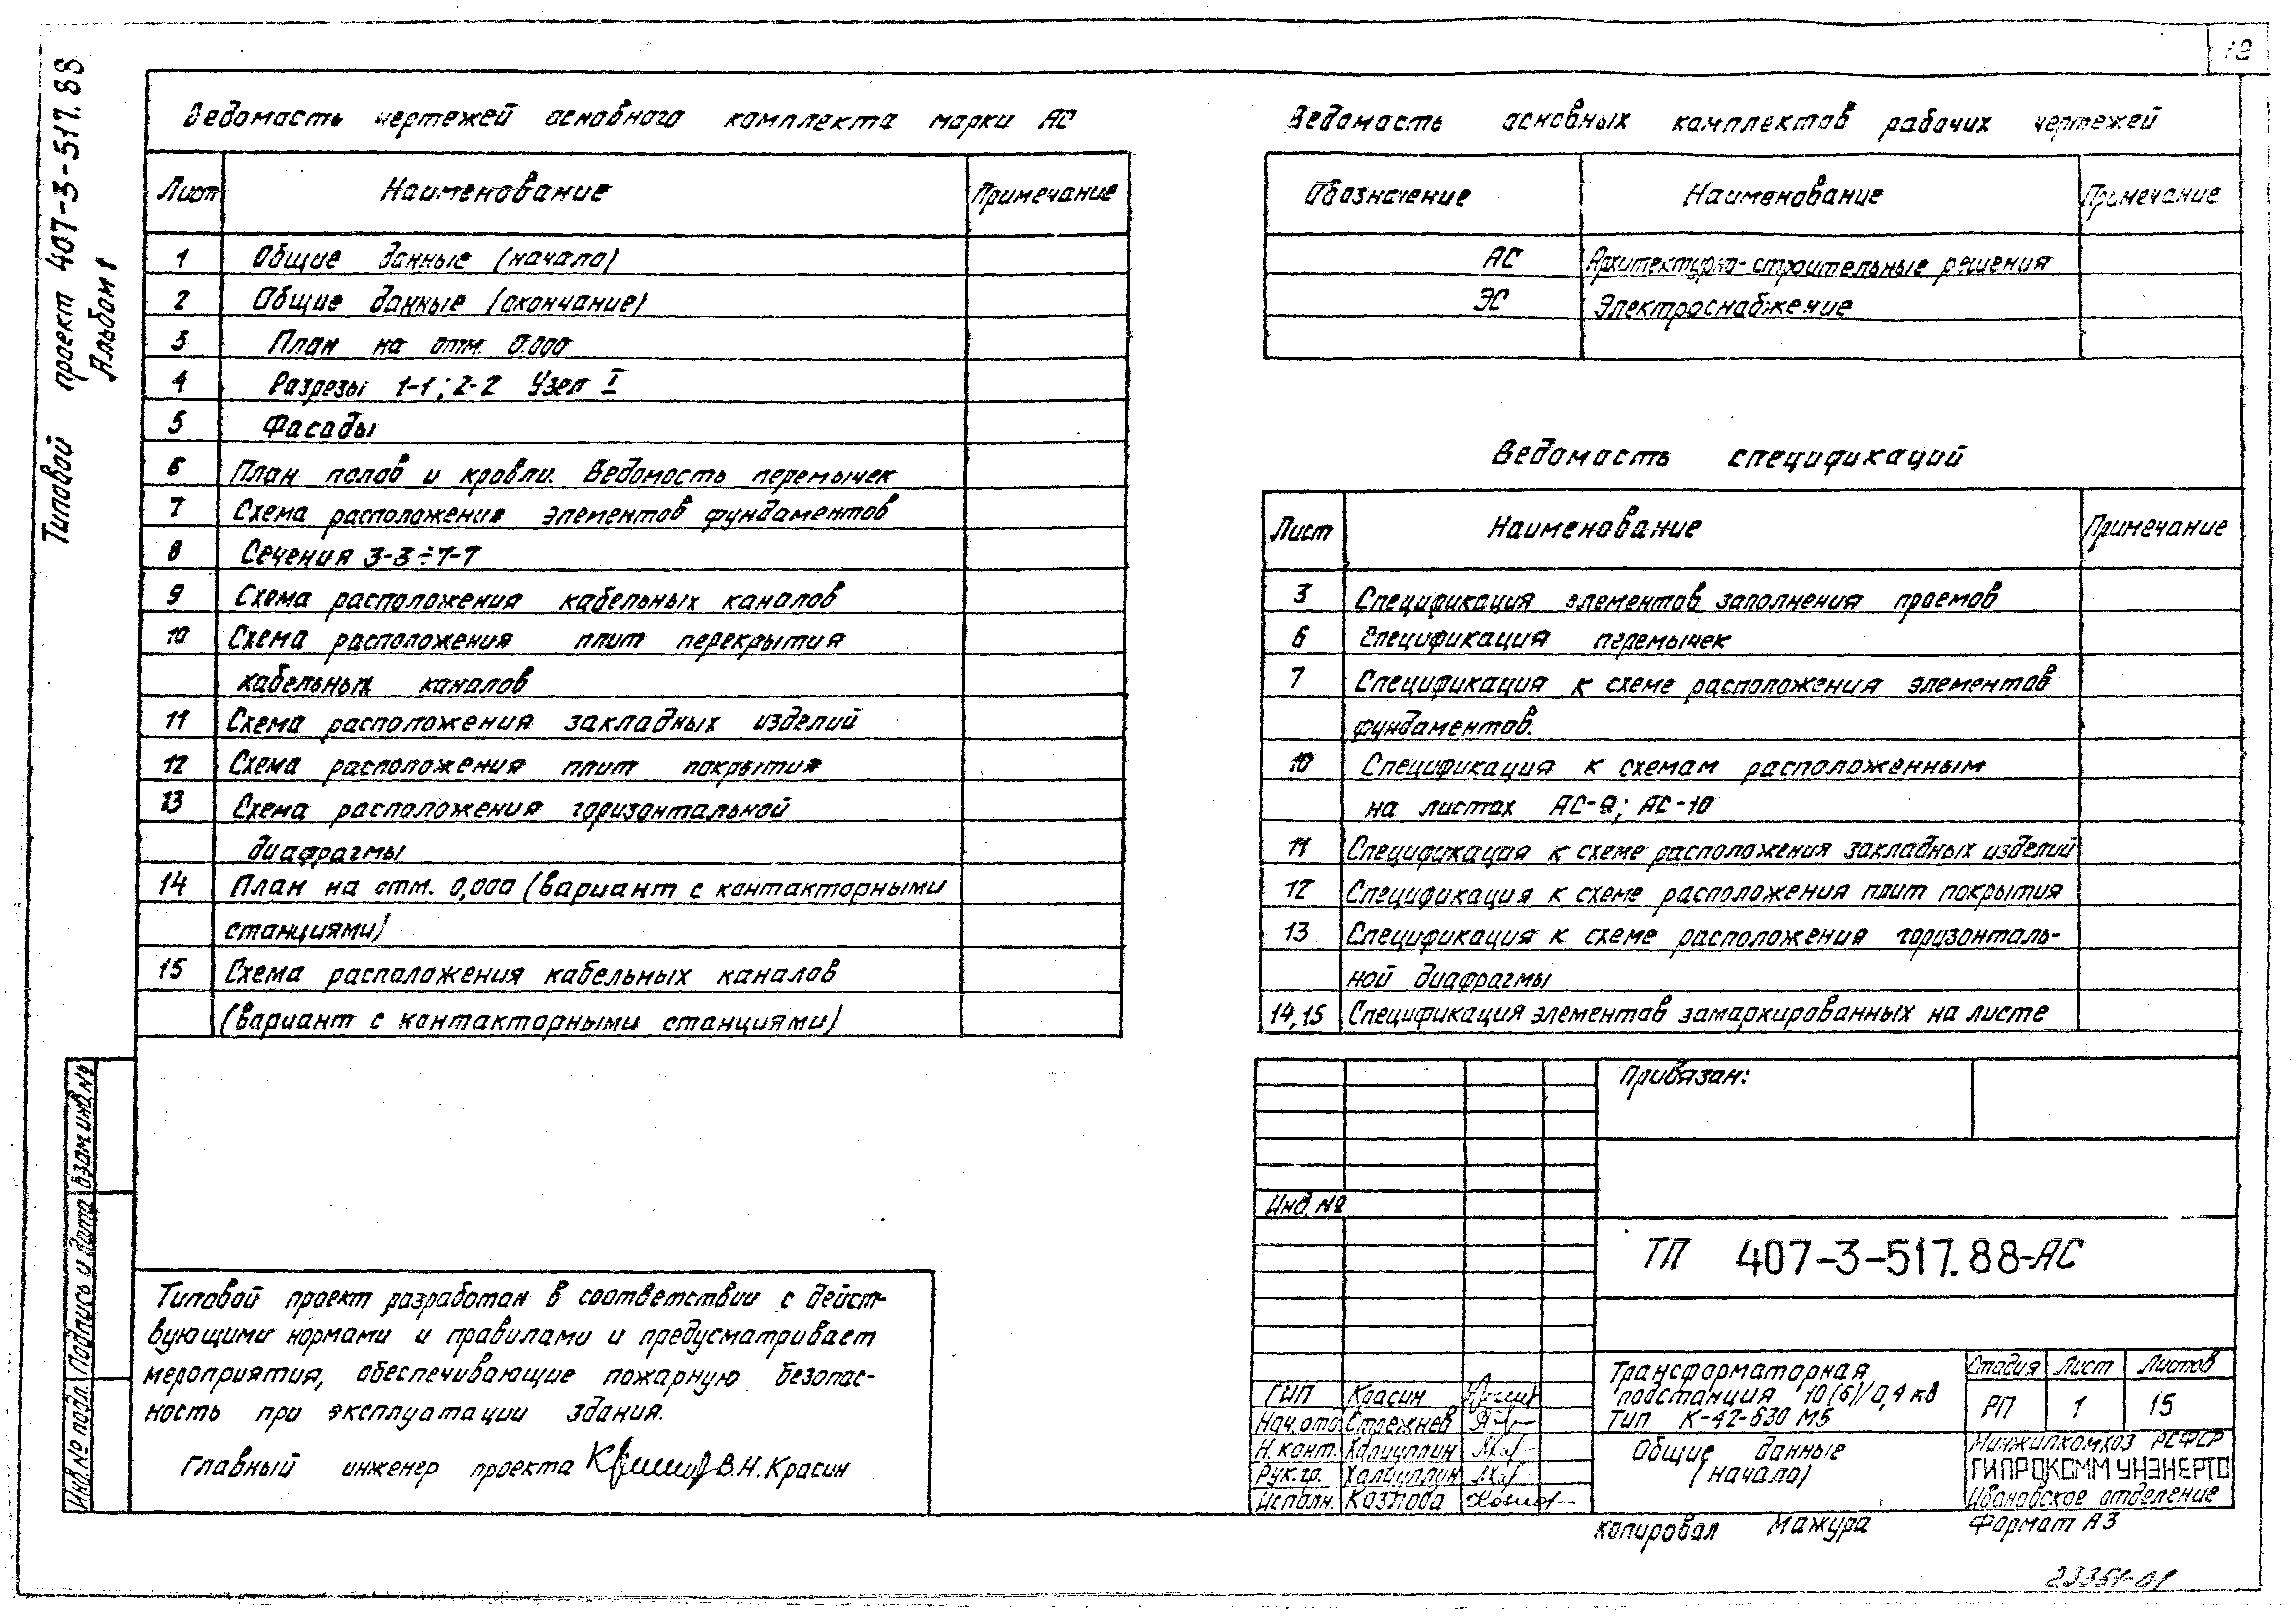 12
Типовой проект 407-3-517.88
Альбом 1
Ведомость чертежей основного комплекта марки АС
Лист Наименование Примечание
1 Общие данные (начало)
2 Общие данные (окончание)
3 План на отм. 0.000
4 Разрезы 1-1; 2-2 Узел I
5 Фасады
6 План полов и кровли. Ведомость перемычек
7 Схема расположения элементов фундаментов
8 Сечения 3-3÷7-7
9 Схема расположения кабельных каналов
10 Схема расположения плит перекрытия
кабельных каналов
11 Схема расположения закладных изделий
12 Схема расположения плит покрытия
13 Схема расположения горизонтальной
диафрагмы
14 План на отм. 0,000 (вариант с контакторными
станциями)
15 Схема расположения кабельных каналов
(вариант с контакторными станциями)
Ведомость основных комплектов рабочих чертежей
Обозначение Наименование Примечание
АС Архитектурно-строительные решения
ЭС Электроснабжение
Ведомость спецификаций
Лист Наименование Примечание
3 Спецификация элементов заполнения проемов
6 Спецификация перемычек
7 Спецификация к схеме расположения элементов
фундаментов.
10 Спецификация к схемам расположенным
на листах АС-9; АС-10
11 Спецификация к схеме расположения закладных изделий
12 Спецификация к схеме расположения плит покрытия
13 Спецификация к схеме расположения горизонталь-
ной диафрагмы
14,15 Спецификация элементов замаркированных на листе
Типовой проект разработан в соответствии с дейст-
вующими нормами и правилами и предусматривает
мероприятия, обеспечивающие пожарную безопас-
ность при эксплуатации здания.
Главный инженер проекта В.Н. Красин
Взам инв №
Подпись и дата
Инв. № подл.
Привязан:
Инв. №
ТП 407-3-517.88-АС
ГИП Красин
Нач. отд. Стрежнев
Н. конт. Халиуллин
Рук. гр. Халиуллин
Исполн. Козлова
Трансформаторная
подстанция 10(6)/0,4 кв
Тип К-42-630 М5
Общие данные
(начало)
Стадия Лист Листов
РП 1 15
Минжилкомхоз РСФСР
ГИПРОКОММУНЭНЕРГО
Ивановское отделение
Копировал Мажура Формат А3
23351-01